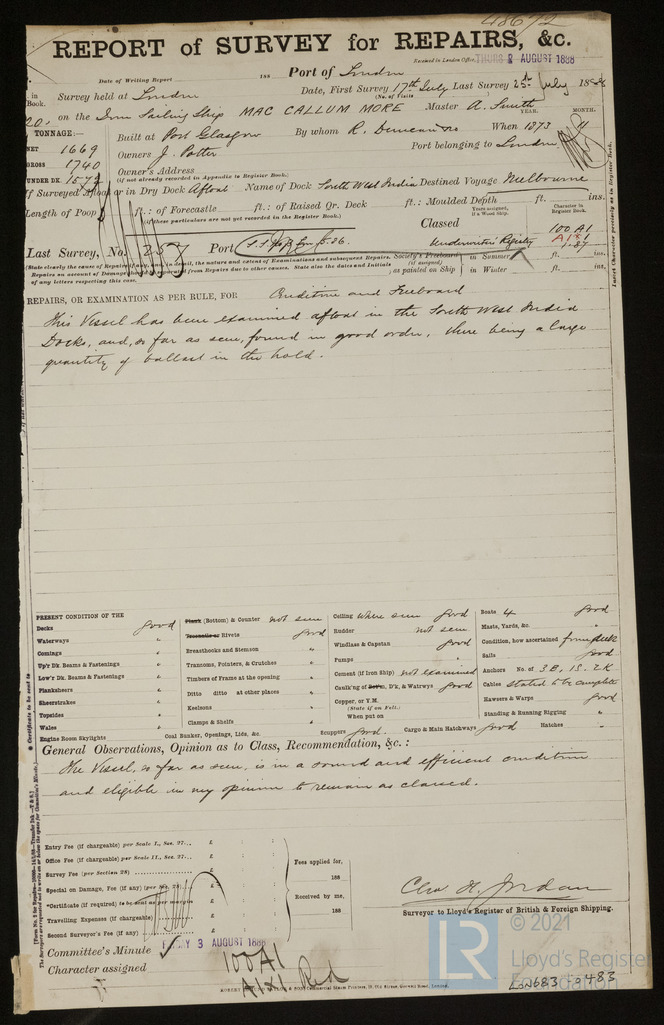 48672
REPORT of SURVEY for REPAIRS, &c.
Received in London Office, THURS 2 AUGUST 1888
Date of Writing Report 188 Port of London
in Book. Survey held at London Date, First Survey 17th July Last Survey 25th July 1888
(No. of Visits
on the Iron Sailing Ship MAC CALLUM MORE Master A. Smith
TONNAGE:— Built at Port Glasgow By whom R. Duncan & Co When 1873 MONTH.
NET 1669
GROSS 1740 Owners J. Potter Port belonging to London
UNDER DK. Owner's Address
(if not already recorded in Appendix to Register Book.)
If Surveyed Afloat or in Dry Dock Afloat Name of Dock South West India Destined Voyage Melbourne
Length of Poop ft.: of Forecastle ft.: of Raised Qr. Deck ft.: Moulded Depth ft. ins.
(if these particulars are not yet recorded in the Register Book.)
Years assigned, if a Wood Ship.
Character in Register Book.
Classed 100 A1
Underwriters Registry A1 1.87
Last Survey, No. Port
(State clearly the cause of Repairs, if any, and in detail, the nature and extent of Examinations and subsequent Repairs.
Repairs on account of Damage to be separated from Repairs due to other causes. State also the dates and Initials of any letters respecting this case.
Society's Freeboard (if assigned) as painted on Ship in Summer ft. ins.
in Winter ft. ins.
REPAIRS, OR EXAMINATION AS PER RULE, FOR Condition and Freeboard
This Vessel has been examined afloat in the South West India
Docks, and, so far as seen, found in good order, there being a large
quantity of ballast in the hold.
PRESENT CONDITION OF THE
Decks good
Waterways "
Comings "
Up'r Dk. Beams & Fastenings "
Low'r Dk. Beams & Fastenings "
Planksheers "
Sheerstrakes "
Topsides "
Wales "
Engine Room Skylights
Plank (Bottom) & Counter not seen
Treenails or Rivets good
Breasthooks and Stemson "
Transoms, Pointers, & Crutches "
Timbers of Frame at the opening "
Ditto ditto at other places "
Keelsons "
Clamps & Shelfs "
Coal Bunker, Openings, Lids, &c.
Ceiling where seen good
Rudder not seen
Windlass & Capstan good
Pumps "
Cement (if Iron Ship) not examined
Caulk'ng of Bot'm, D'k, & Watrwys good
Copper, or Y.M.
(State if on Felt.)
When put on
Scuppers good. Cargo & Main Hatchways good Hatches "
Boats 4 good
Masts, Yards, &c. "
Condition, how ascertained from deck
Sails good
Anchors No. of 3B, 1S, 2K
Cables stated to be complete
Hawsers & Warps good
Standing & Running Rigging "
General Observations, Opinion as to Class, Recommendation, &c.:
The Vessel, so far as seen, is in a sound and efficient condition
and eligible in my opinion to remain as classed.
Entry Fee (if chargeable) per Scale I., Sec. 27... £ : :
Office Fee (if chargeable) per Scale II., Sec. 27... £ : :
Survey Fee (per Section 28) £ : :
Special on Damage, Fee (if any) (per Sec. 28) £ : :
*Certificate (if required) to be sent as per margin £ : :
Travelling Expenses (if chargeable) £ : :
Second Surveyor's Fee (if any) £ : :
Fees applied for, 188
Received by me, 188
Geo. H. Jordan
Surveyor to Lloyd's Register of British & Foreign Shipping.
Committee's Minute FRIDAY 3 AUGUST 1888
Character assigned 100A1
A1X1 Red
© 2021
LR
Lloyd's Register
Foundation
LON683-0483